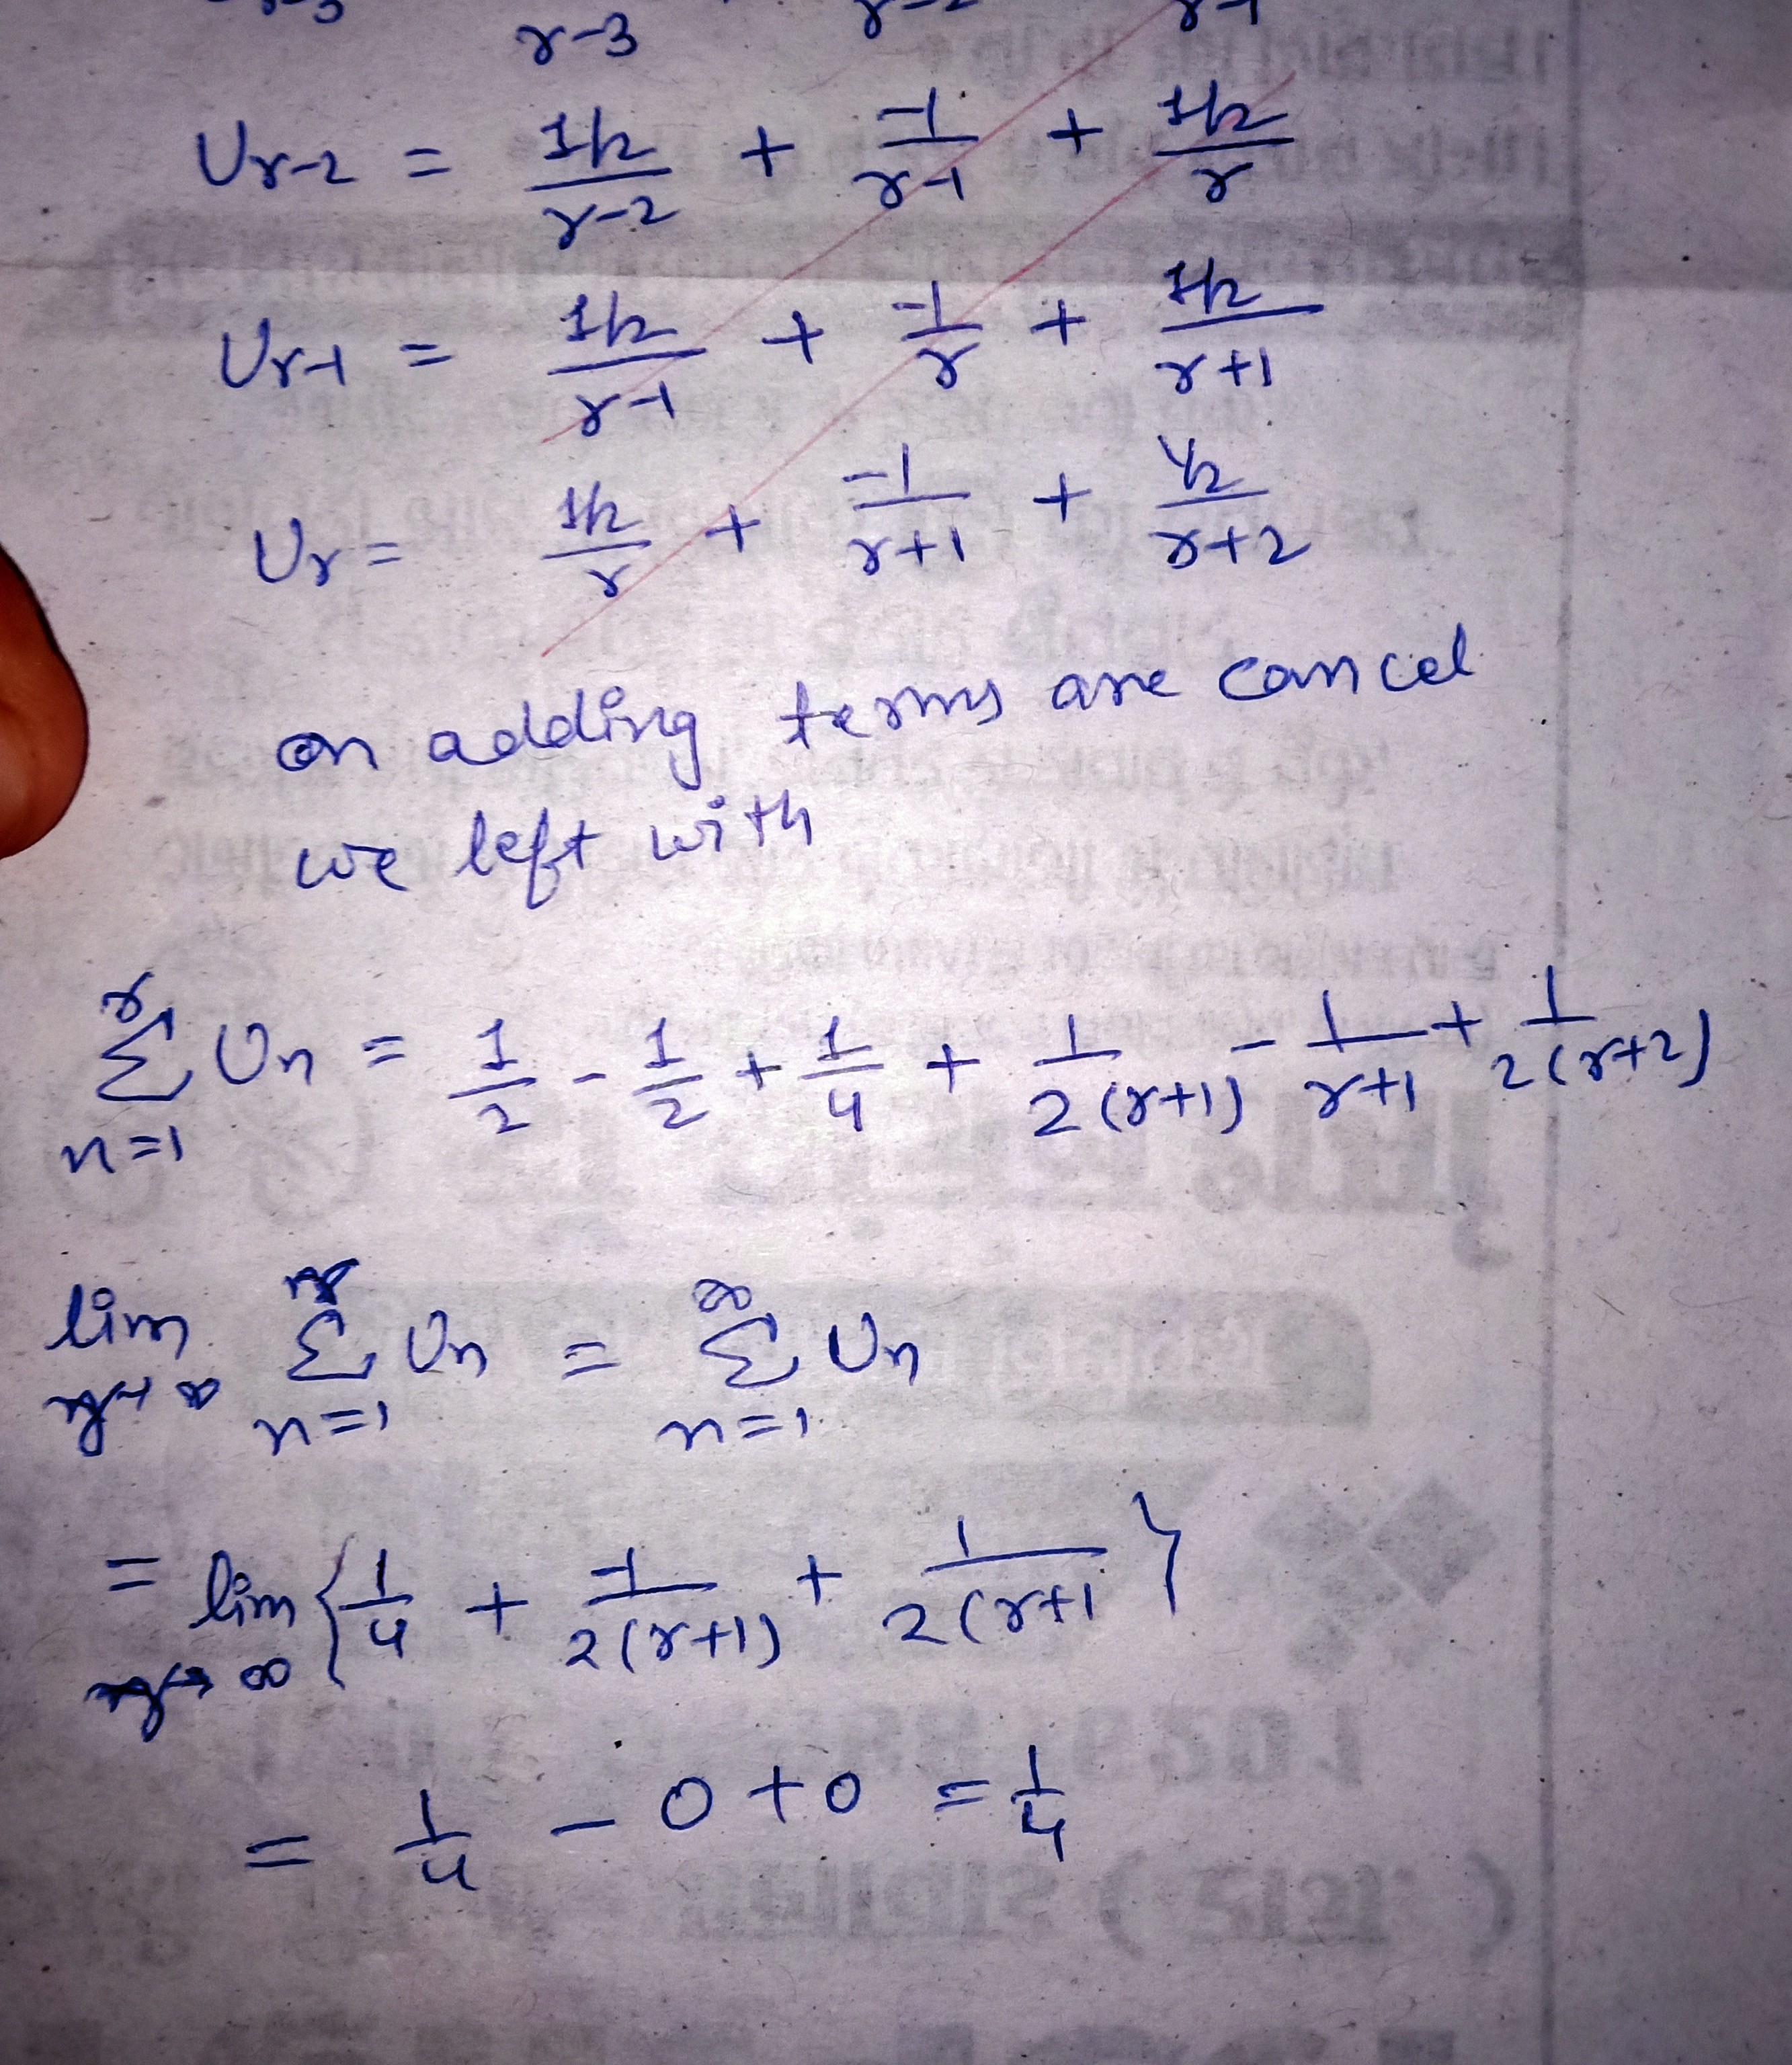 r-3 r-3 r-2 r-1
U_{r-2} = \frac{1/2}{r-2} + \frac{-1}{r-1} + \frac{1/2}{r}
U_{r-1} = \frac{1/2}{r-1} + \frac{-1}{r} + \frac{1/2}{r+1}
U_r = \frac{1/2}{r} + \frac{-1}{r+1} + \frac{1/2}{r+2}
on adding terms are cancel
we left with
\sum_{n=1}^{r} U_n = \frac{1}{2} - \frac{1}{2} + \frac{1}{4} + \frac{1}{2(r+1)} - \frac{1}{r+1} + \frac{1}{2(r+2)}
\lim_{r \to \infty} \sum_{n=1}^{r} U_n = \sum_{n=1}^{\infty} U_n
= \lim_{r \to \infty} \{ \frac{1}{4} + \frac{-1}{2(r+1)} + \frac{1}{2(r+1} \}
= \frac{1}{4} - 0 + 0 = \frac{1}{4}